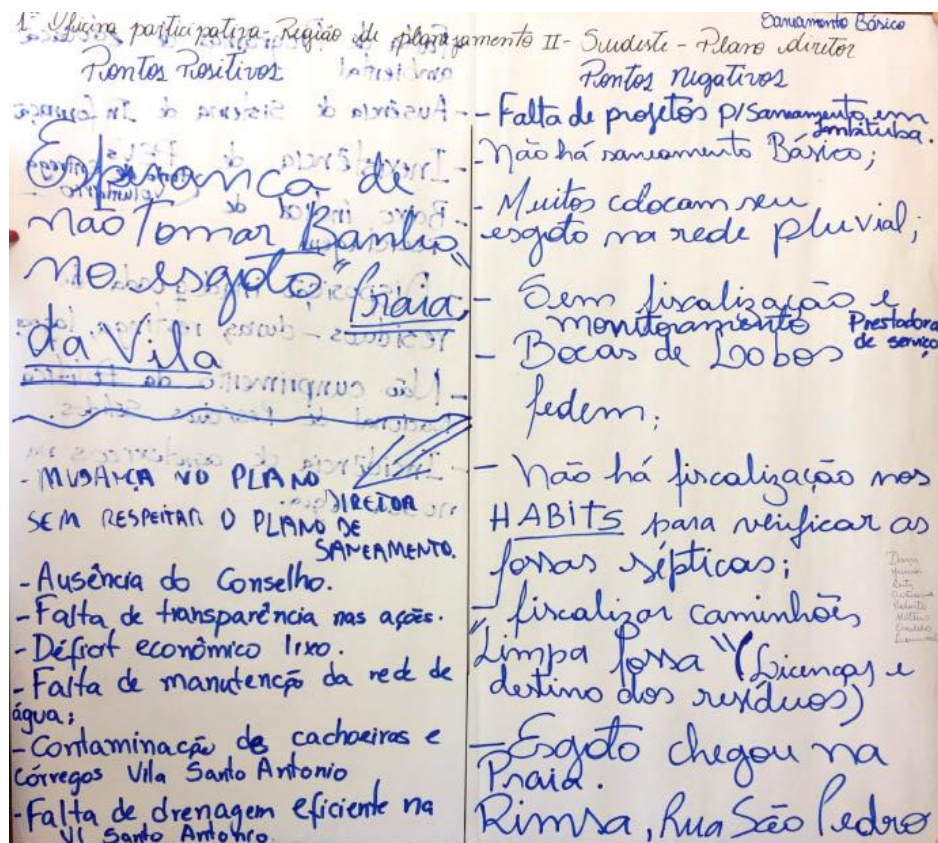 Saneamento Básico
1ª Oficina participativa - Região de planejamento II - Sudeste - Plano diretor
Pontos Positivos
Esperança de
não Tomar Banho
no esgoto "Praia
da Vila"
- MUDANÇA NO PLANO
DIRETOR
SEM RESPEITAR O PLANO DE
SANEAMENTO.
- Ausência do Conselho.
- Falta de transparência nas ações.
- Déficit econômico lixo.
- Falta de manutenção da rede de
água;
- Contaminação de cachoeiras e
córregos Vila Santo Antonio
- Falta de drenagem eficiente na
Vl Santo Antonio.
Pontos negativos
- Falta de projetos p/ saneamento em
Imbituba.
- Não há saneamento Básico;
- Muitos colocam seu
esgoto na rede pluvial;
- Sem fiscalização e
monitoramento Prestadora
de serviço
- Bocas de Lobos
fedem;
- Não há fiscalização nos
HABITS para verificar as
fossas sépticas;
- fiscalizar caminhões
"Limpa fossa" (Licenças e
destino dos resíduos)
- Esgoto chegou na
Praia.
Rimsa, Rua São Pedro